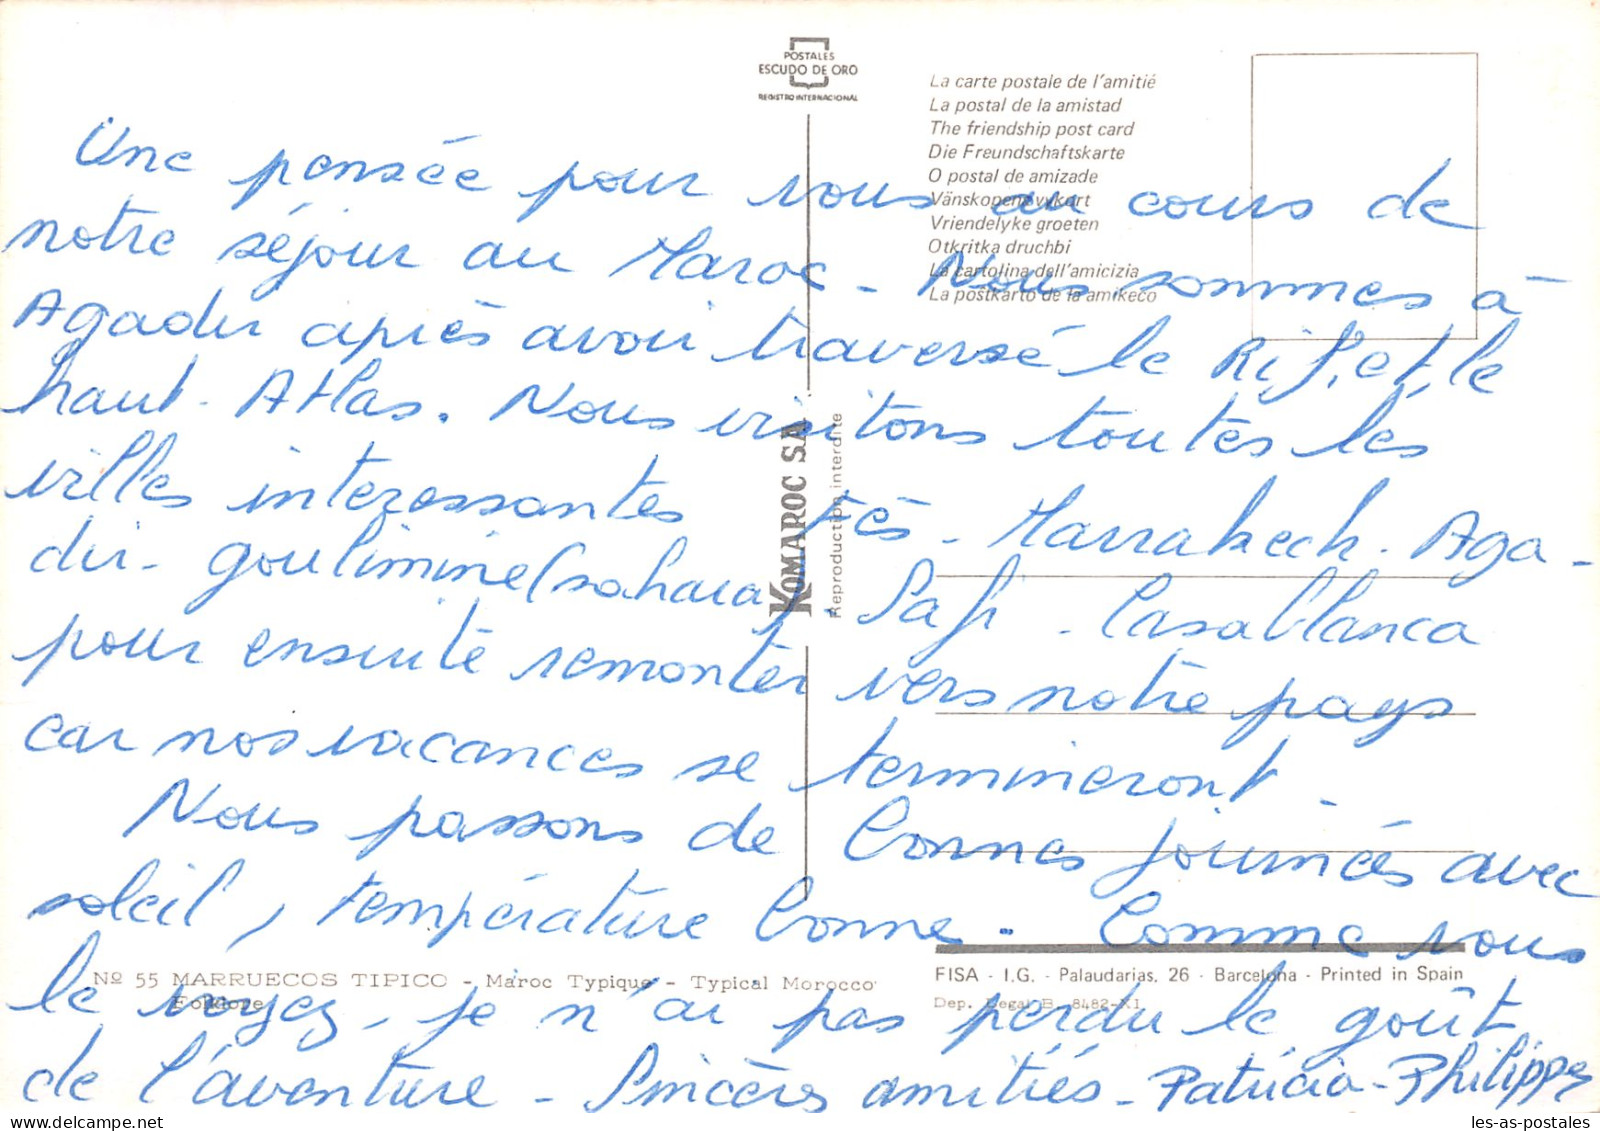 POSTALES
ESCUDO DE ORO
REGISTRO INTERNACIONAL
La carte postale de l'amitié
La postal de la amistad
The friendship post card
Die Freundschaftskarte
O postal de amizade
Vänskopens vykort
Vriendelyke groeten
Otkritka druchbi
La cartolina dell'amicizia
La postkarto de la amikeco
Une pensée pour vous au cours de
notre séjour au Maroc - Nous sommes à
Agadir après avoir traversé le Rif, et le
haut - Atlas. Nous visitons toutes les
villes interessantes Fès - Marrakech - Aga-
dir - goulimine (sahara) - Safi - Casablanca
pour ensuite remonter vers notre pays
car nos vacances se termineront -
Nous passons de bonnes journées avec
soleil, température bonne - Comme vous
le voyez, je n'ai pas perdu le goût
de l'aventure - Sincères amitiés - Patricia - Philippe
KOMAROC SA
Reproduction interdite
Nº 55 MARRUECOS TIPICO - Maroc Typique - Typical Morocco
Folklore
FISA - I.G. - Palaudarias, 26 - Barcelona - Printed in Spain
Dep. Legal B. 8482-XI
les-as-postales